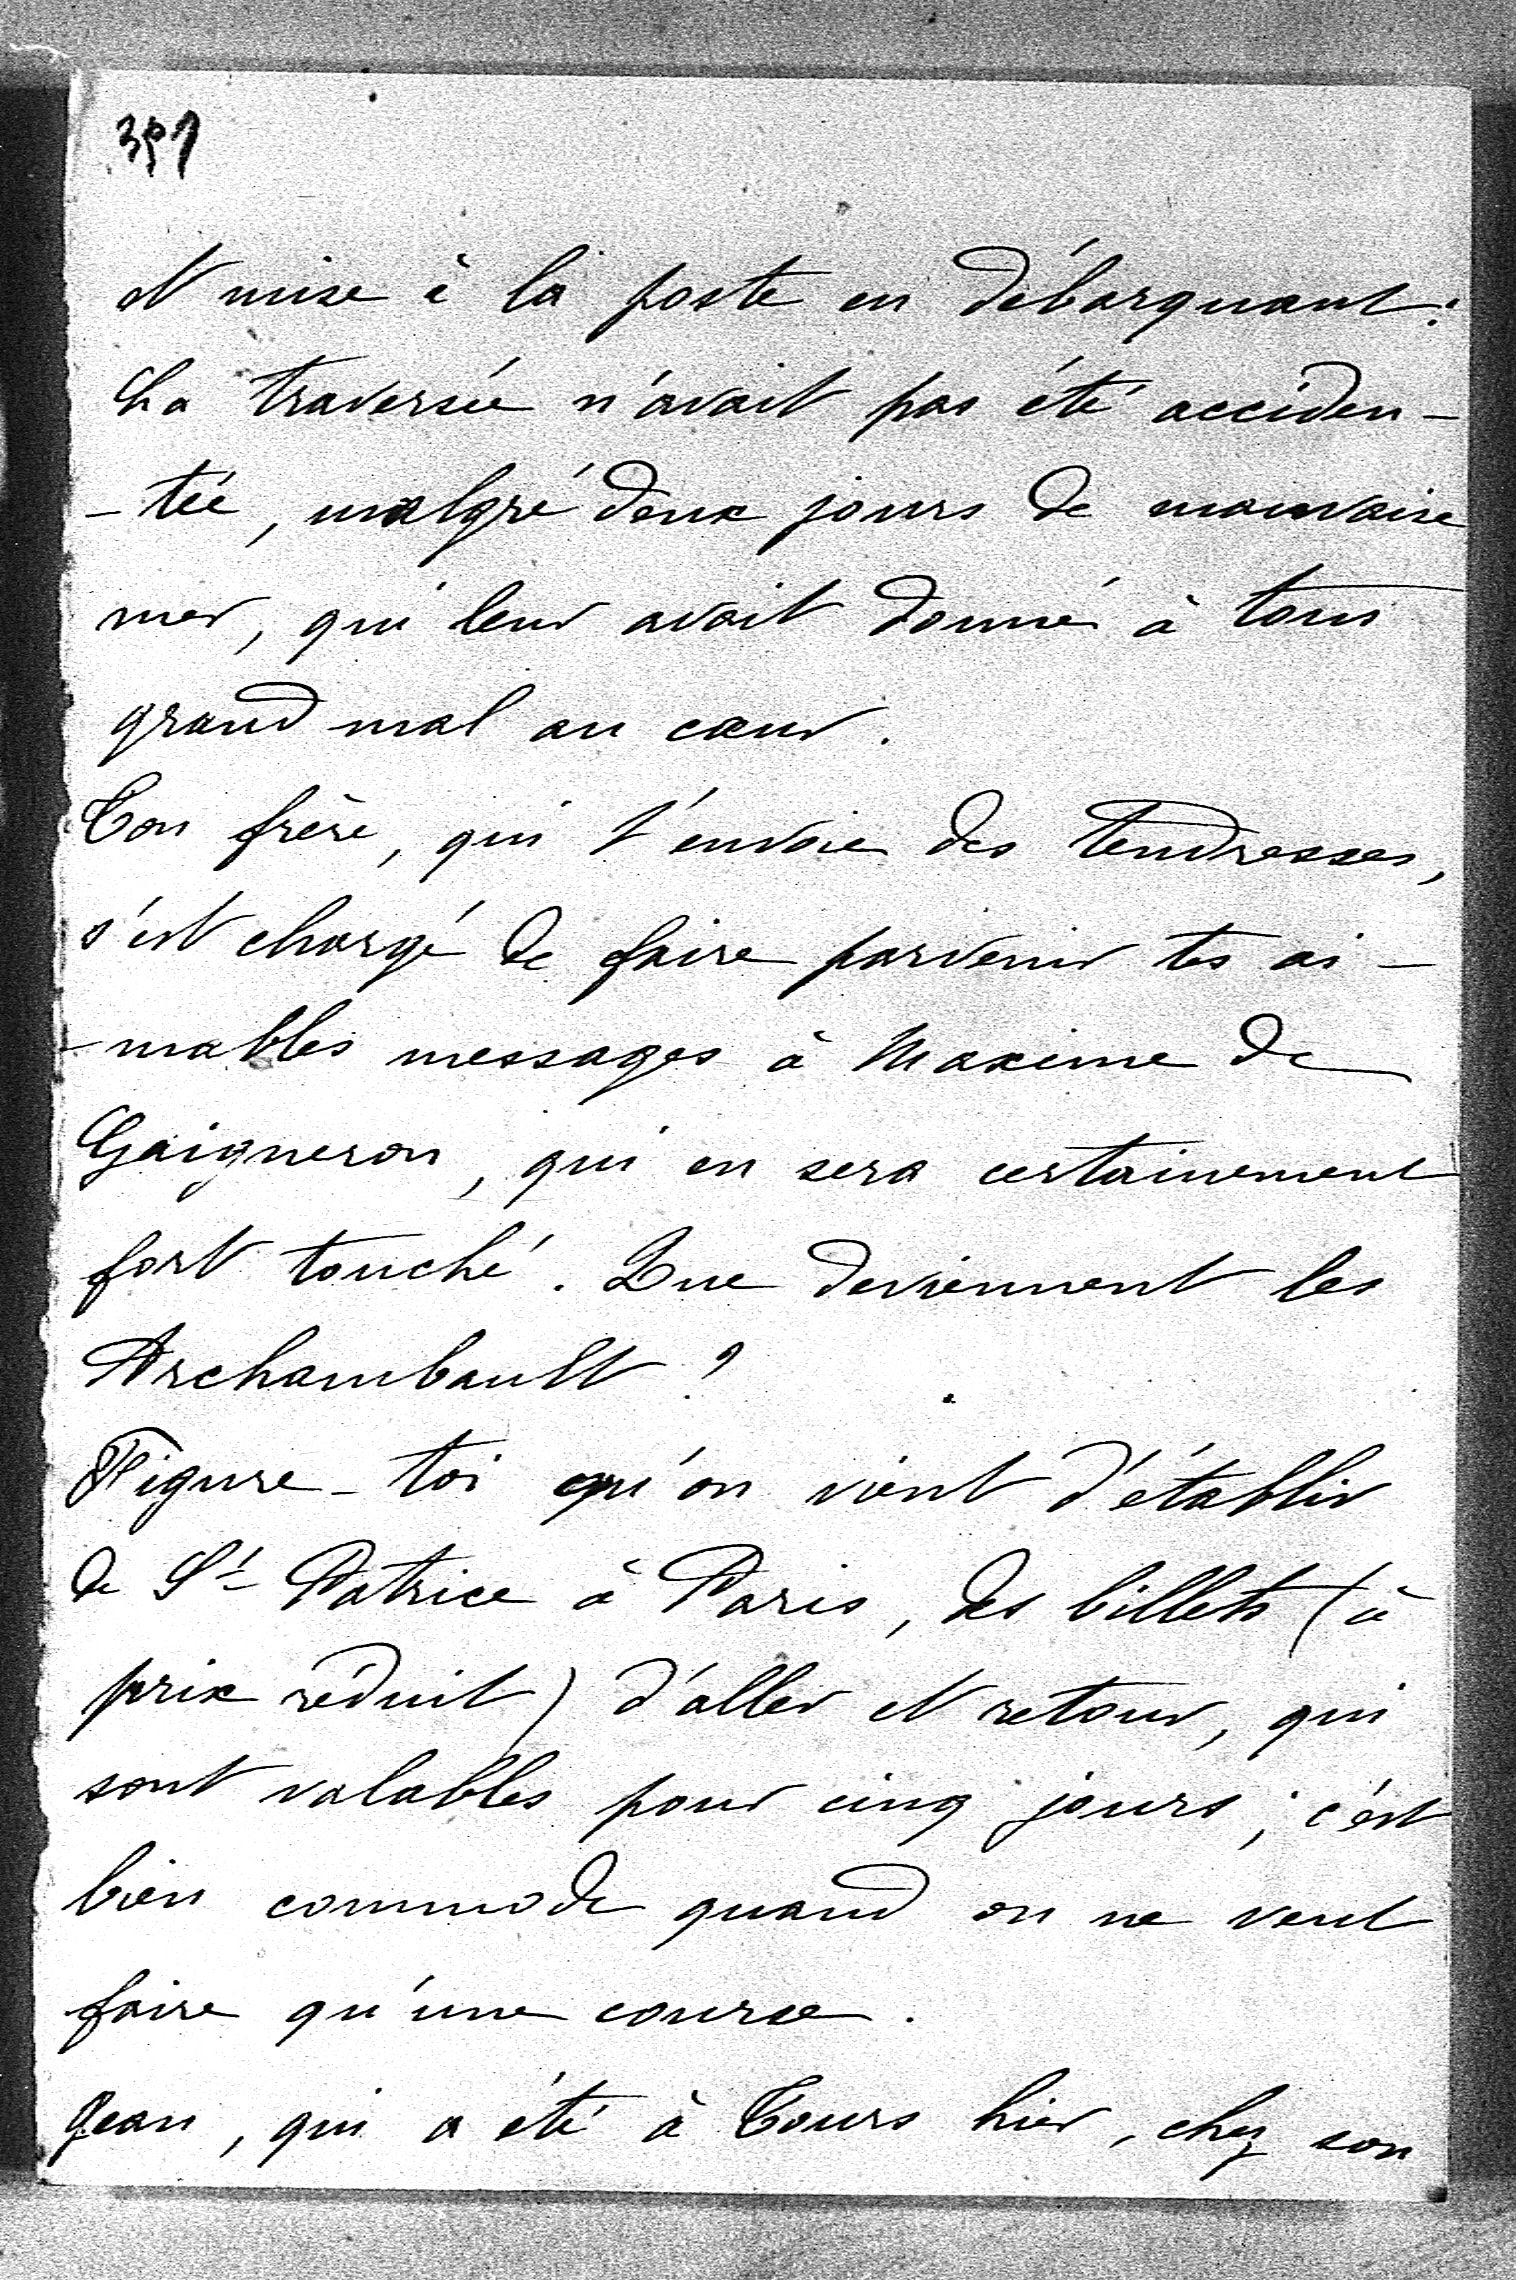 et mise à la poste en débarquant.
La traversée n'avait pas été acciden-
-tée, malgré deux jours de mauvaise
mer, qui leur avait donné à tous
grand mal au cœur.
Ton frère, qui t'envoie des tendresses,
s'est chargé de faire parvenir tes ai-
-mables messages à Maxime de
Gaigneron, qui en sera certainement
fort touché. Que deviennent les
Archambault ?
Figure-toi qu'on vient d'établir
de St Patrice à Paris, des billets (à
prix réduit) d'aller et retour, qui
sont valables pour cinq jours ; c'est
bien commode quand on ne veut
faire qu'une course.
Jean, qui a été à Tours hier, chez son